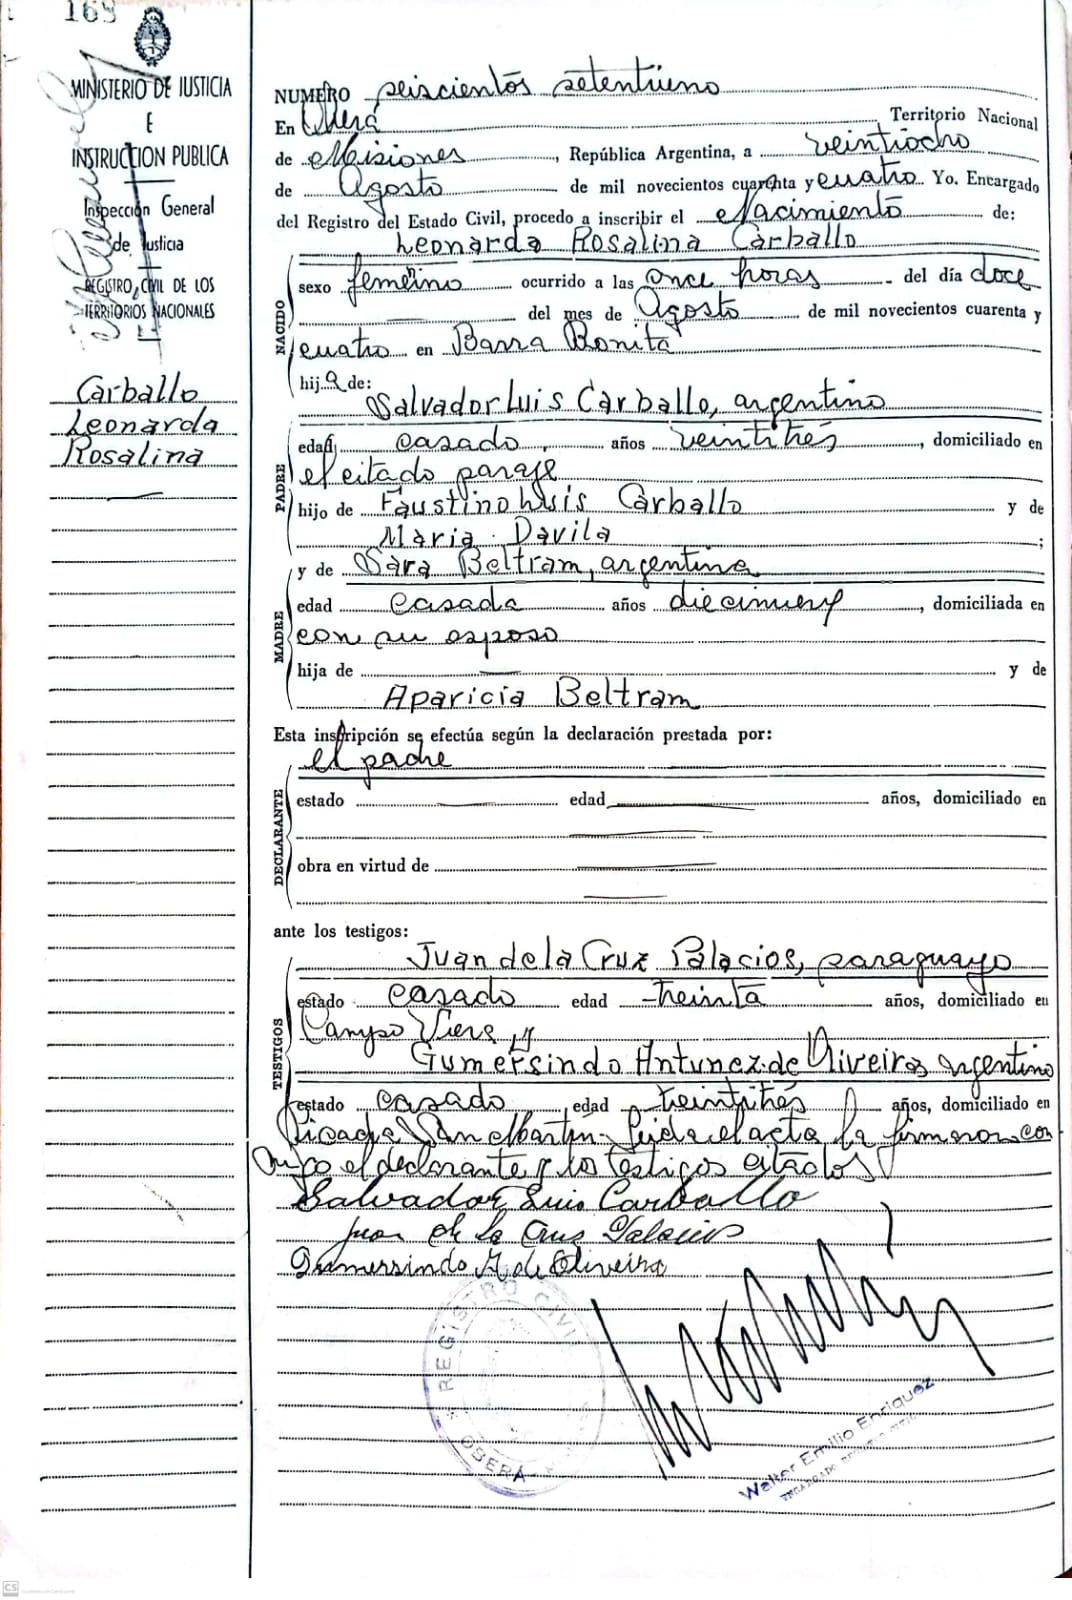 168
MINISTERIO DE JUSTICIA
E
INSTRUCCION PUBLICA
Inspección General
de Justicia
REGISTRO CIVIL DE LOS
TERRITORIOS NACIONALES
Carballo
Leonarda
Rosalina
NUMERO seiscientos setentiuno
En Oberá Territorio Nacional
de Misiones, República Argentina, a veintiocho
de Agosto de mil novecientos cuarenta y cuatro Yo. Encargado
del Registro del Estado Civil, procedo a inscribir el Nacimiento de:
Leonarda Rosalina Carballo
NACIDO
sexo femenino ocurrido a las once horas del día doce
del mes de Agosto de mil novecientos cuarenta y
cuatro en Barra Bonita
hija de:
Salvador Luis Carballo, argentino
PADRE
edad casado, años veintitrés, domiciliado en
el citado paraje
hijo de Faustino Luis Carballo y de
Maria Davila ;
y de Sara Beltram, argentina
MADRE
edad casada años diecinueve, domiciliada en
con su esposo
hija de y de
Aparicia Beltram
Esta inscripción se efectúa según la declaración prestada por:
el padre
DECLARANTE
estado edad años, domiciliado en
obra en virtud de
ante los testigos:
TESTIGOS
Juan de la Cruz Palacios, paraguayo
estado casado edad treinta años, domiciliado en
Campo Viera y
Gumersindo Antunez de Oliveira argentino
estado casado, edad treintitrés años, domiciliado en
Picada San Martin. Leida el acta la firmaron con
migo el declarante y los testigos citados
Salvador Luis Carballo
Juan de la Cruz Palacios
Gumersindo A de Oliveira
REGISTRO CIVIL
OBERA
Walter Emilio Enriquez
CS